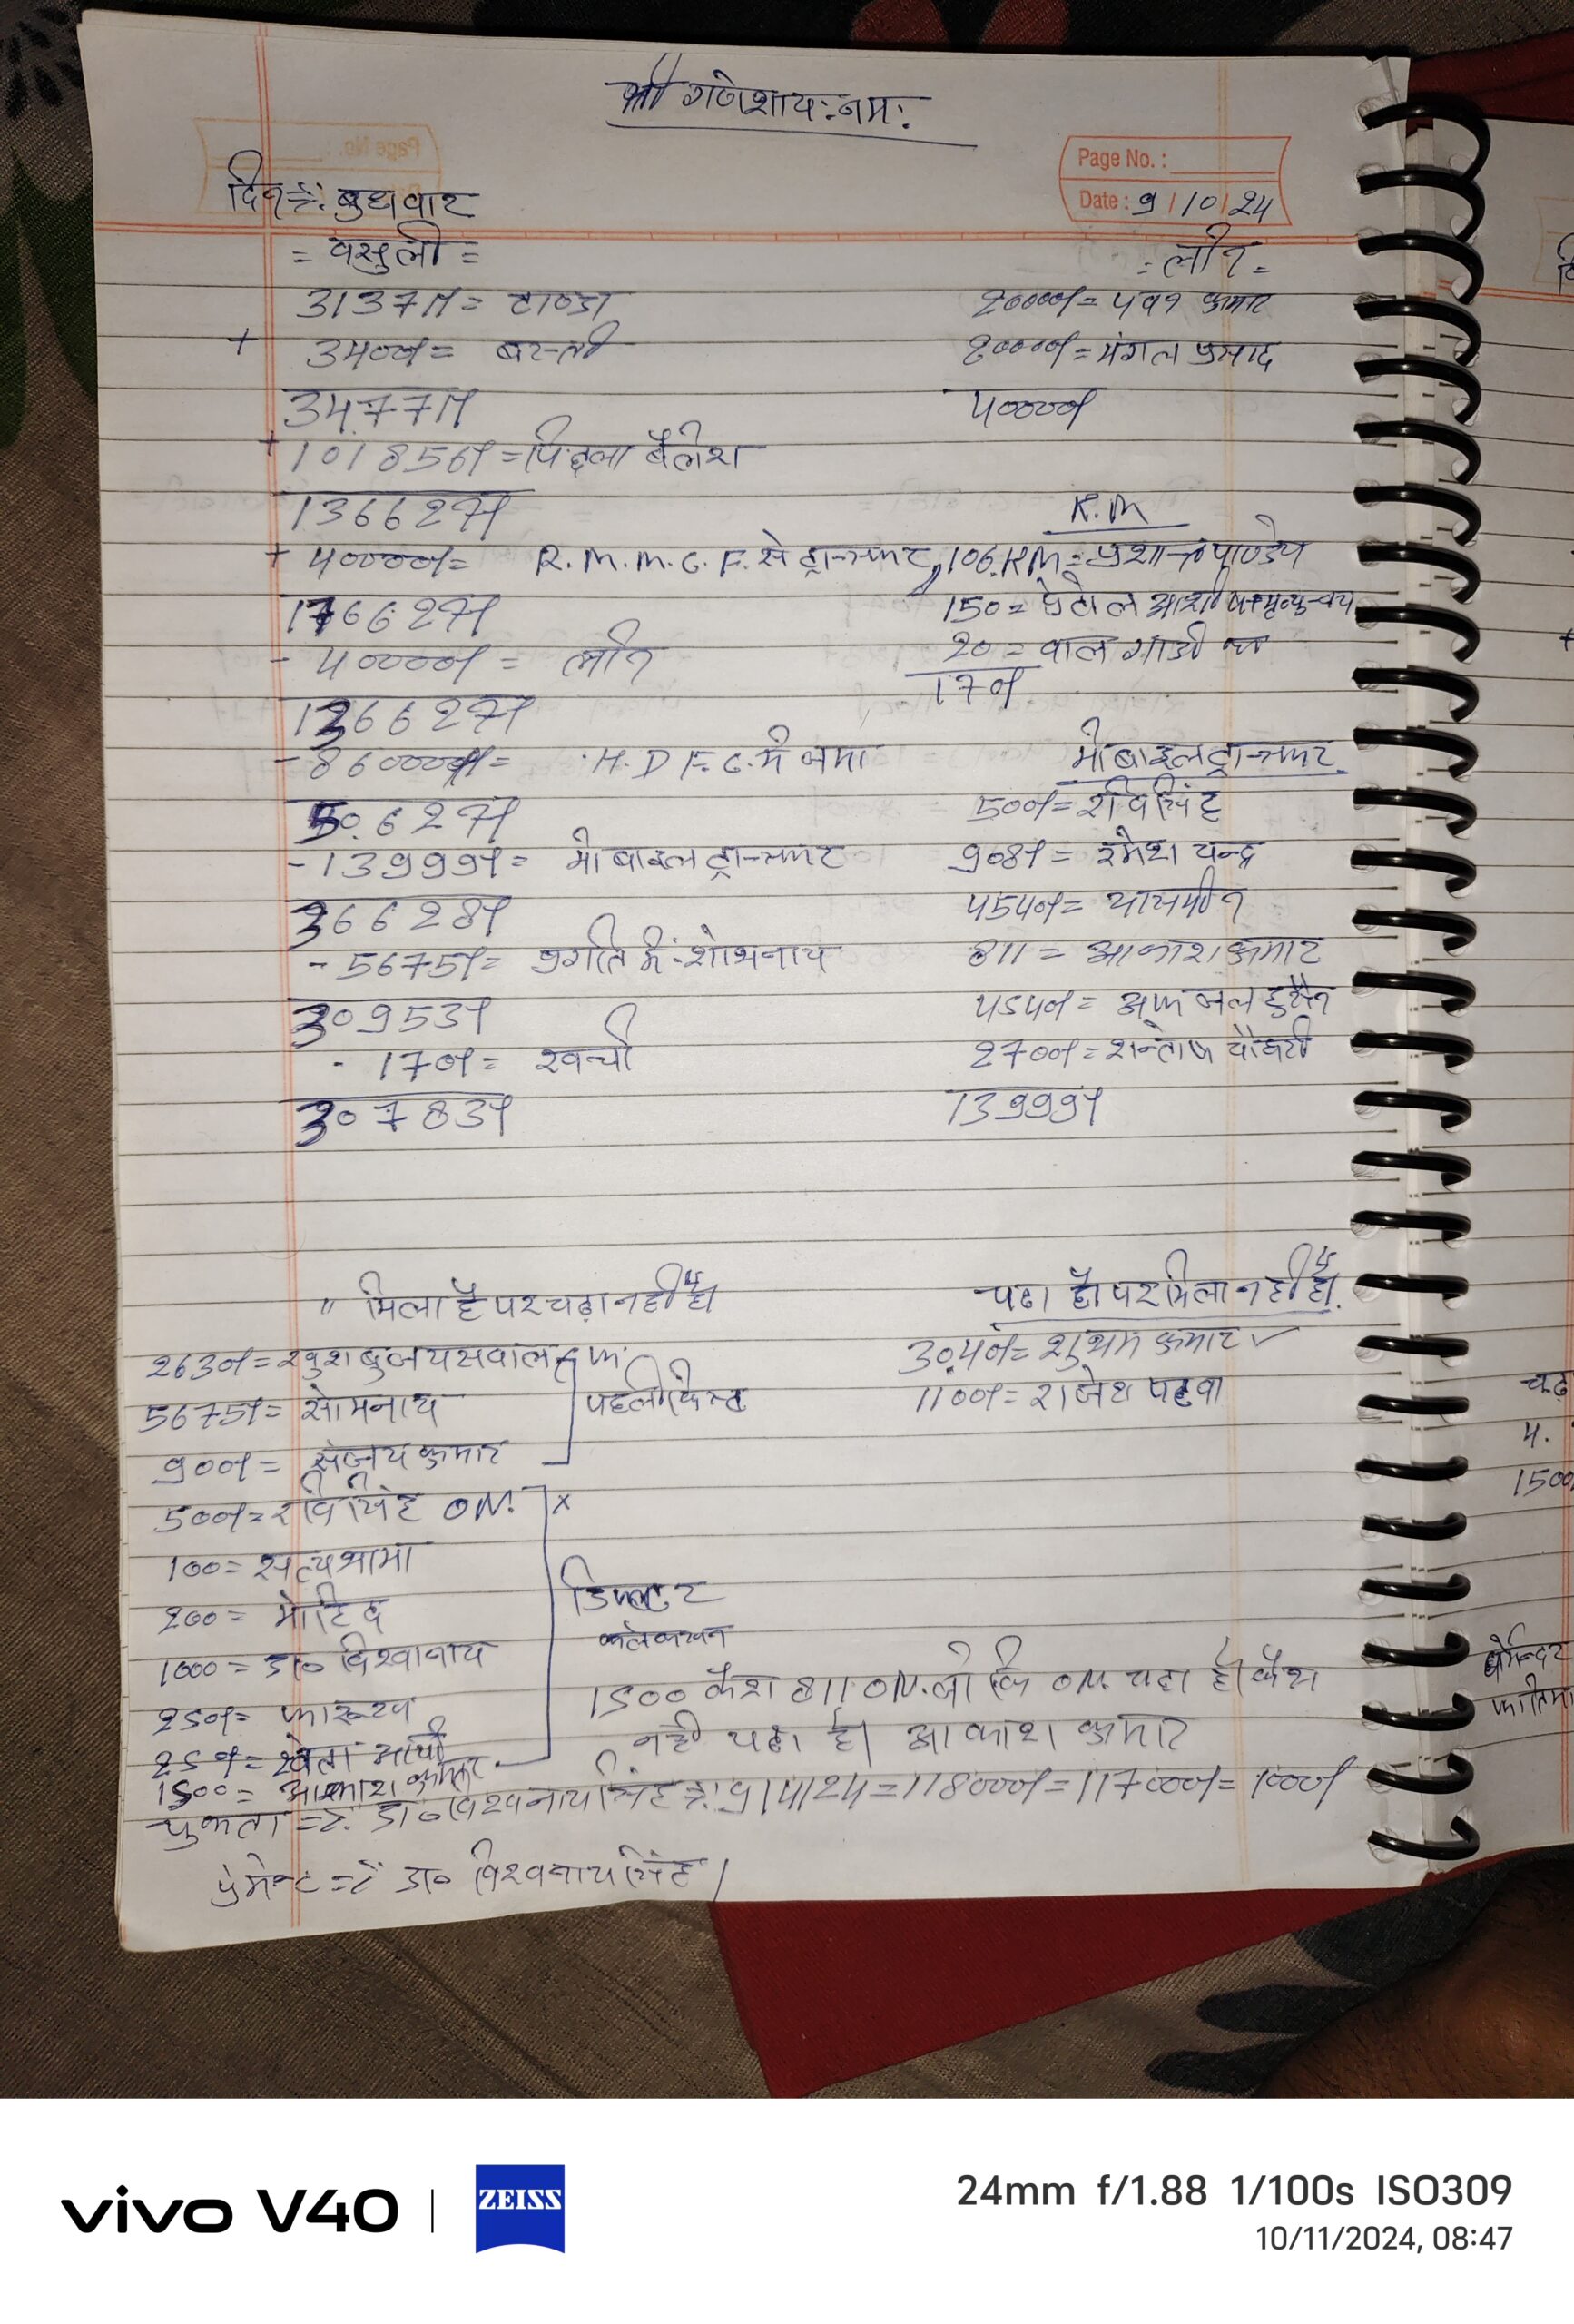 श्री गणेशाय: नम:
Page No. :
Date : 9/10/24
दिनाँक: बुधवार
= वसुली =
31371/= टाण्डा
+ 3400/= बस्ती
34771/
+ 101856/= पिछला बैलेंश
136627/
+ 40000/= R.M.M.C.F. से ट्रान्सफर
176627/
- 40000/= लोन
136627/
- 86000/= H.D.F.C. में जमा
50627/
- 13999/= मोबाइल ट्रान्सफर
36628/
- 5675/= प्रगति में: शोभनाथ
30953/
- 170/= खर्चा
30783/
= लोन =
20000/= पवन कुमार
20000/= मंगल प्रसाद
40000/
R.M
106.KM = प्रशान्त पाण्डेय
150 = पेट्रोल आशीष+मृत्युन्जय
20 = वाल गाडी का
170/
मोबाइल ट्रान्सफर
500/= रवि सिंह
908/= रमेश चन्द्र
4540/= यासमीन
811 = आकाश कुमार
4540/= अफजल हुसैन
2700/= सन्तोष चौधरी
13999/
" मिला है पर चढ़ा नहीं है।
2630/= खुशबु जयसवाल
5675/= सोमनाथ पहली किस्त
900/= संजय कुमार
500/= रवि सिंह ON. x
100 = सत्यभामा
200 = मोहिद डिफाल्टर
1000 = डा० विश्वनाथ कलेक्शन
250/= फारूख
25/= श्वेता
1500 = आकाश कुमार
चढा है पर मिला नहीं है।
3040/= शुभम कुमार ✓
1100/= राजेश पटवा
1500 कैश 811 ON. जो कि ON. चढा है। कैश
नही चढा है। आकाश कुमार
चुकता =: डा० विश्वनाथ सिंह 9/4/24 = 118000/= 117000/= 1000/
पेमेन्ट =: डा० विश्वनाथ सिंह/
4.
1500
धर्मेन्दर
फातिमा
vivo V40 | ZEISS
24mm f/1.88 1/100s ISO309
10/11/2024, 08:47